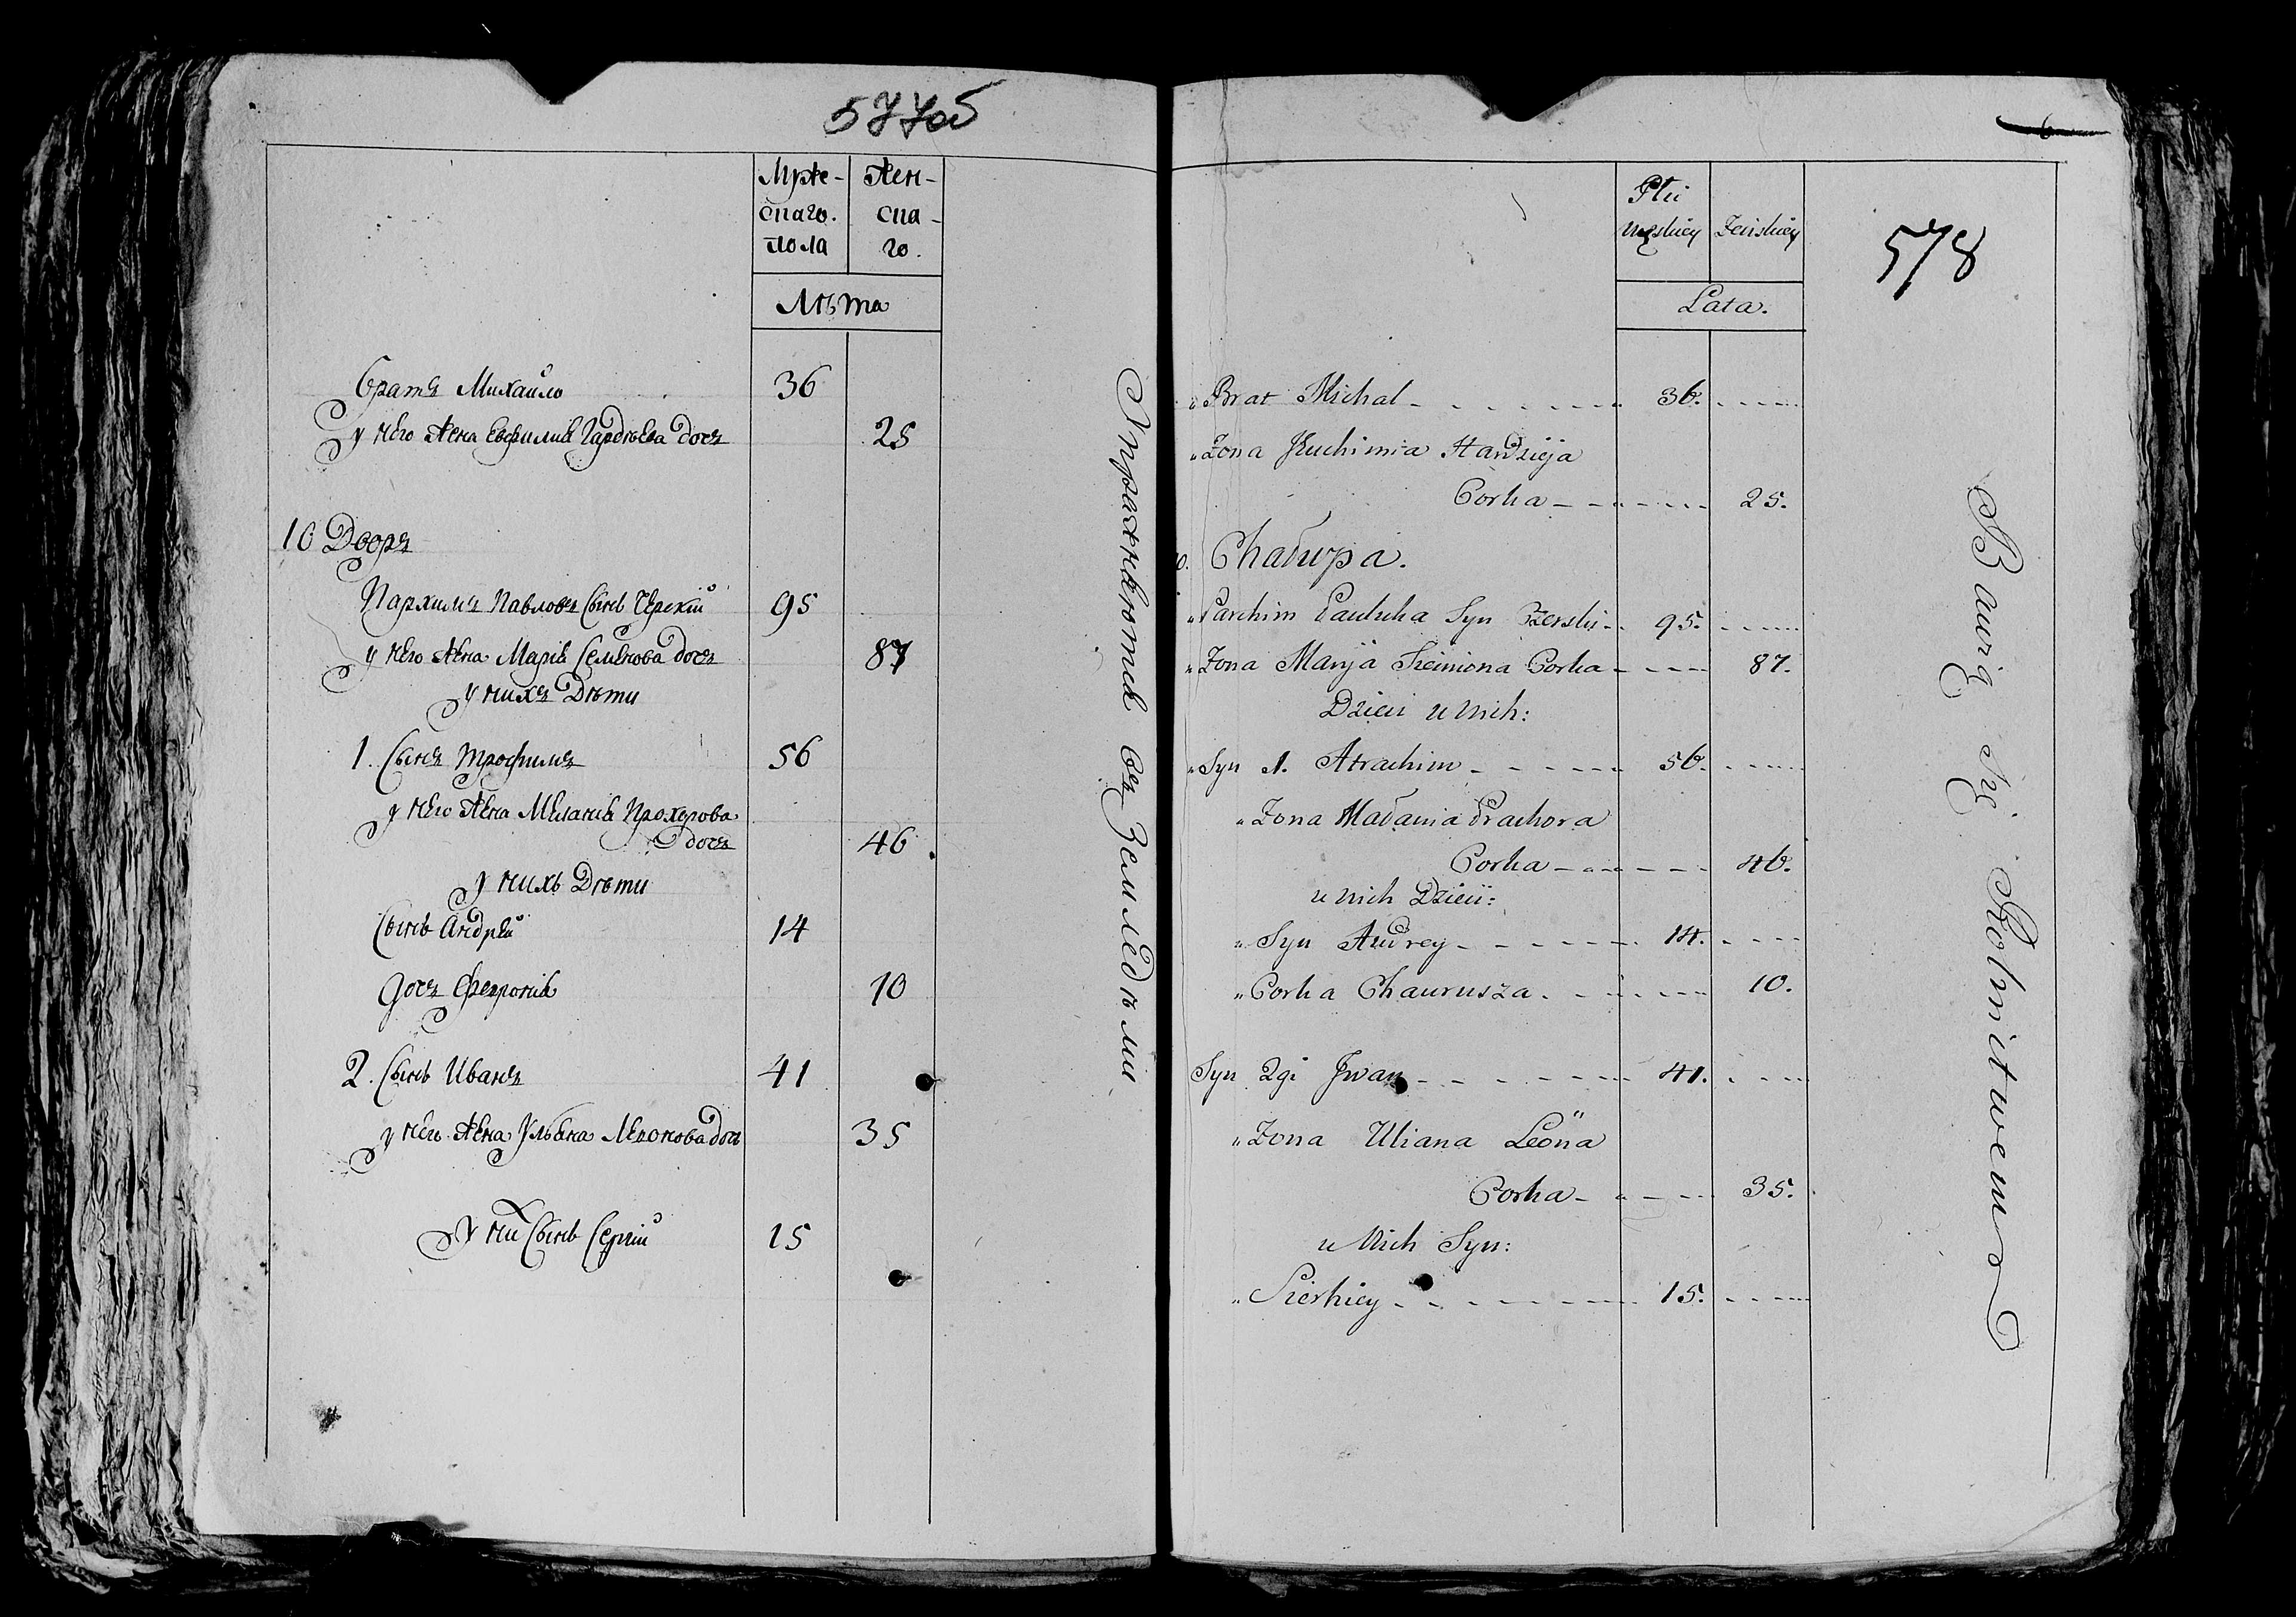 577об
Муже-
скаго.
пола
Жен-
ска-
го.
Лѣта
братъ Михайло 36
у него жена Евфимия Гордѣева дочь 25
10 Дворъ
Пархимъ Павловъ сынъ Черскій 95
у него жена Марія Семенова дочь 87
у нихъ Дѣти
1. Сынъ Трофимъ 56
у него жена Меланія Прохорова
дочь 46
у нихъ Дѣти
Сынъ Андрей 14
дочь Феѵронія 10
2. Сынъ Иванъ 41
у него жена Ульяна Леонова дочь 35
У них Сынъ Сергій 15
Упражняются въ Земледѣлии
6
578
Płci
męskiey
Żeńskiey
Lata.
„ Brat Michał 36.
„ Żona Jeuchimia Hardzieja
Corka 25.
10. Chałupa.
„ Parchim Pauluka Syn Czerski 95.
„ Żona Maryja Siemiona Corka 87.
Dzieci u nich:
„ Syn 1. Atrachim 56.
„ Żona Małania Prachora
Corka 46.
u nich Dzieci:
„ Syn Andrey 14.
„ Corka Chaurusza 10.
Syn 2gi Jwan 41.
„ Żona Uliana Leona
Corka 35.
u Nich Syn:
„ Sierhiey 15.
Bawią się Rolnictwem